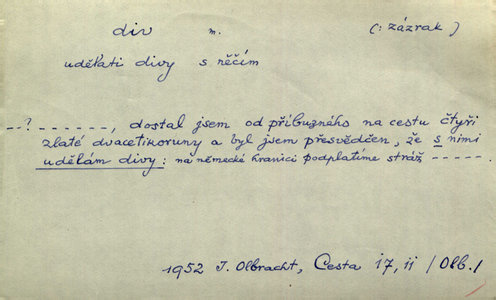 div m. (: zázrak)
udělati divy s něčím
--?------, dostal jsem od příbuzného na cestu čtyři
zlaté dvacetikoruny a byl jsem přesvědčen, že s nimi
udělám divy: na německé hranici podplatíme stráž -----.
1952 I. Olbracht, Cesta 17, ii /Olb./